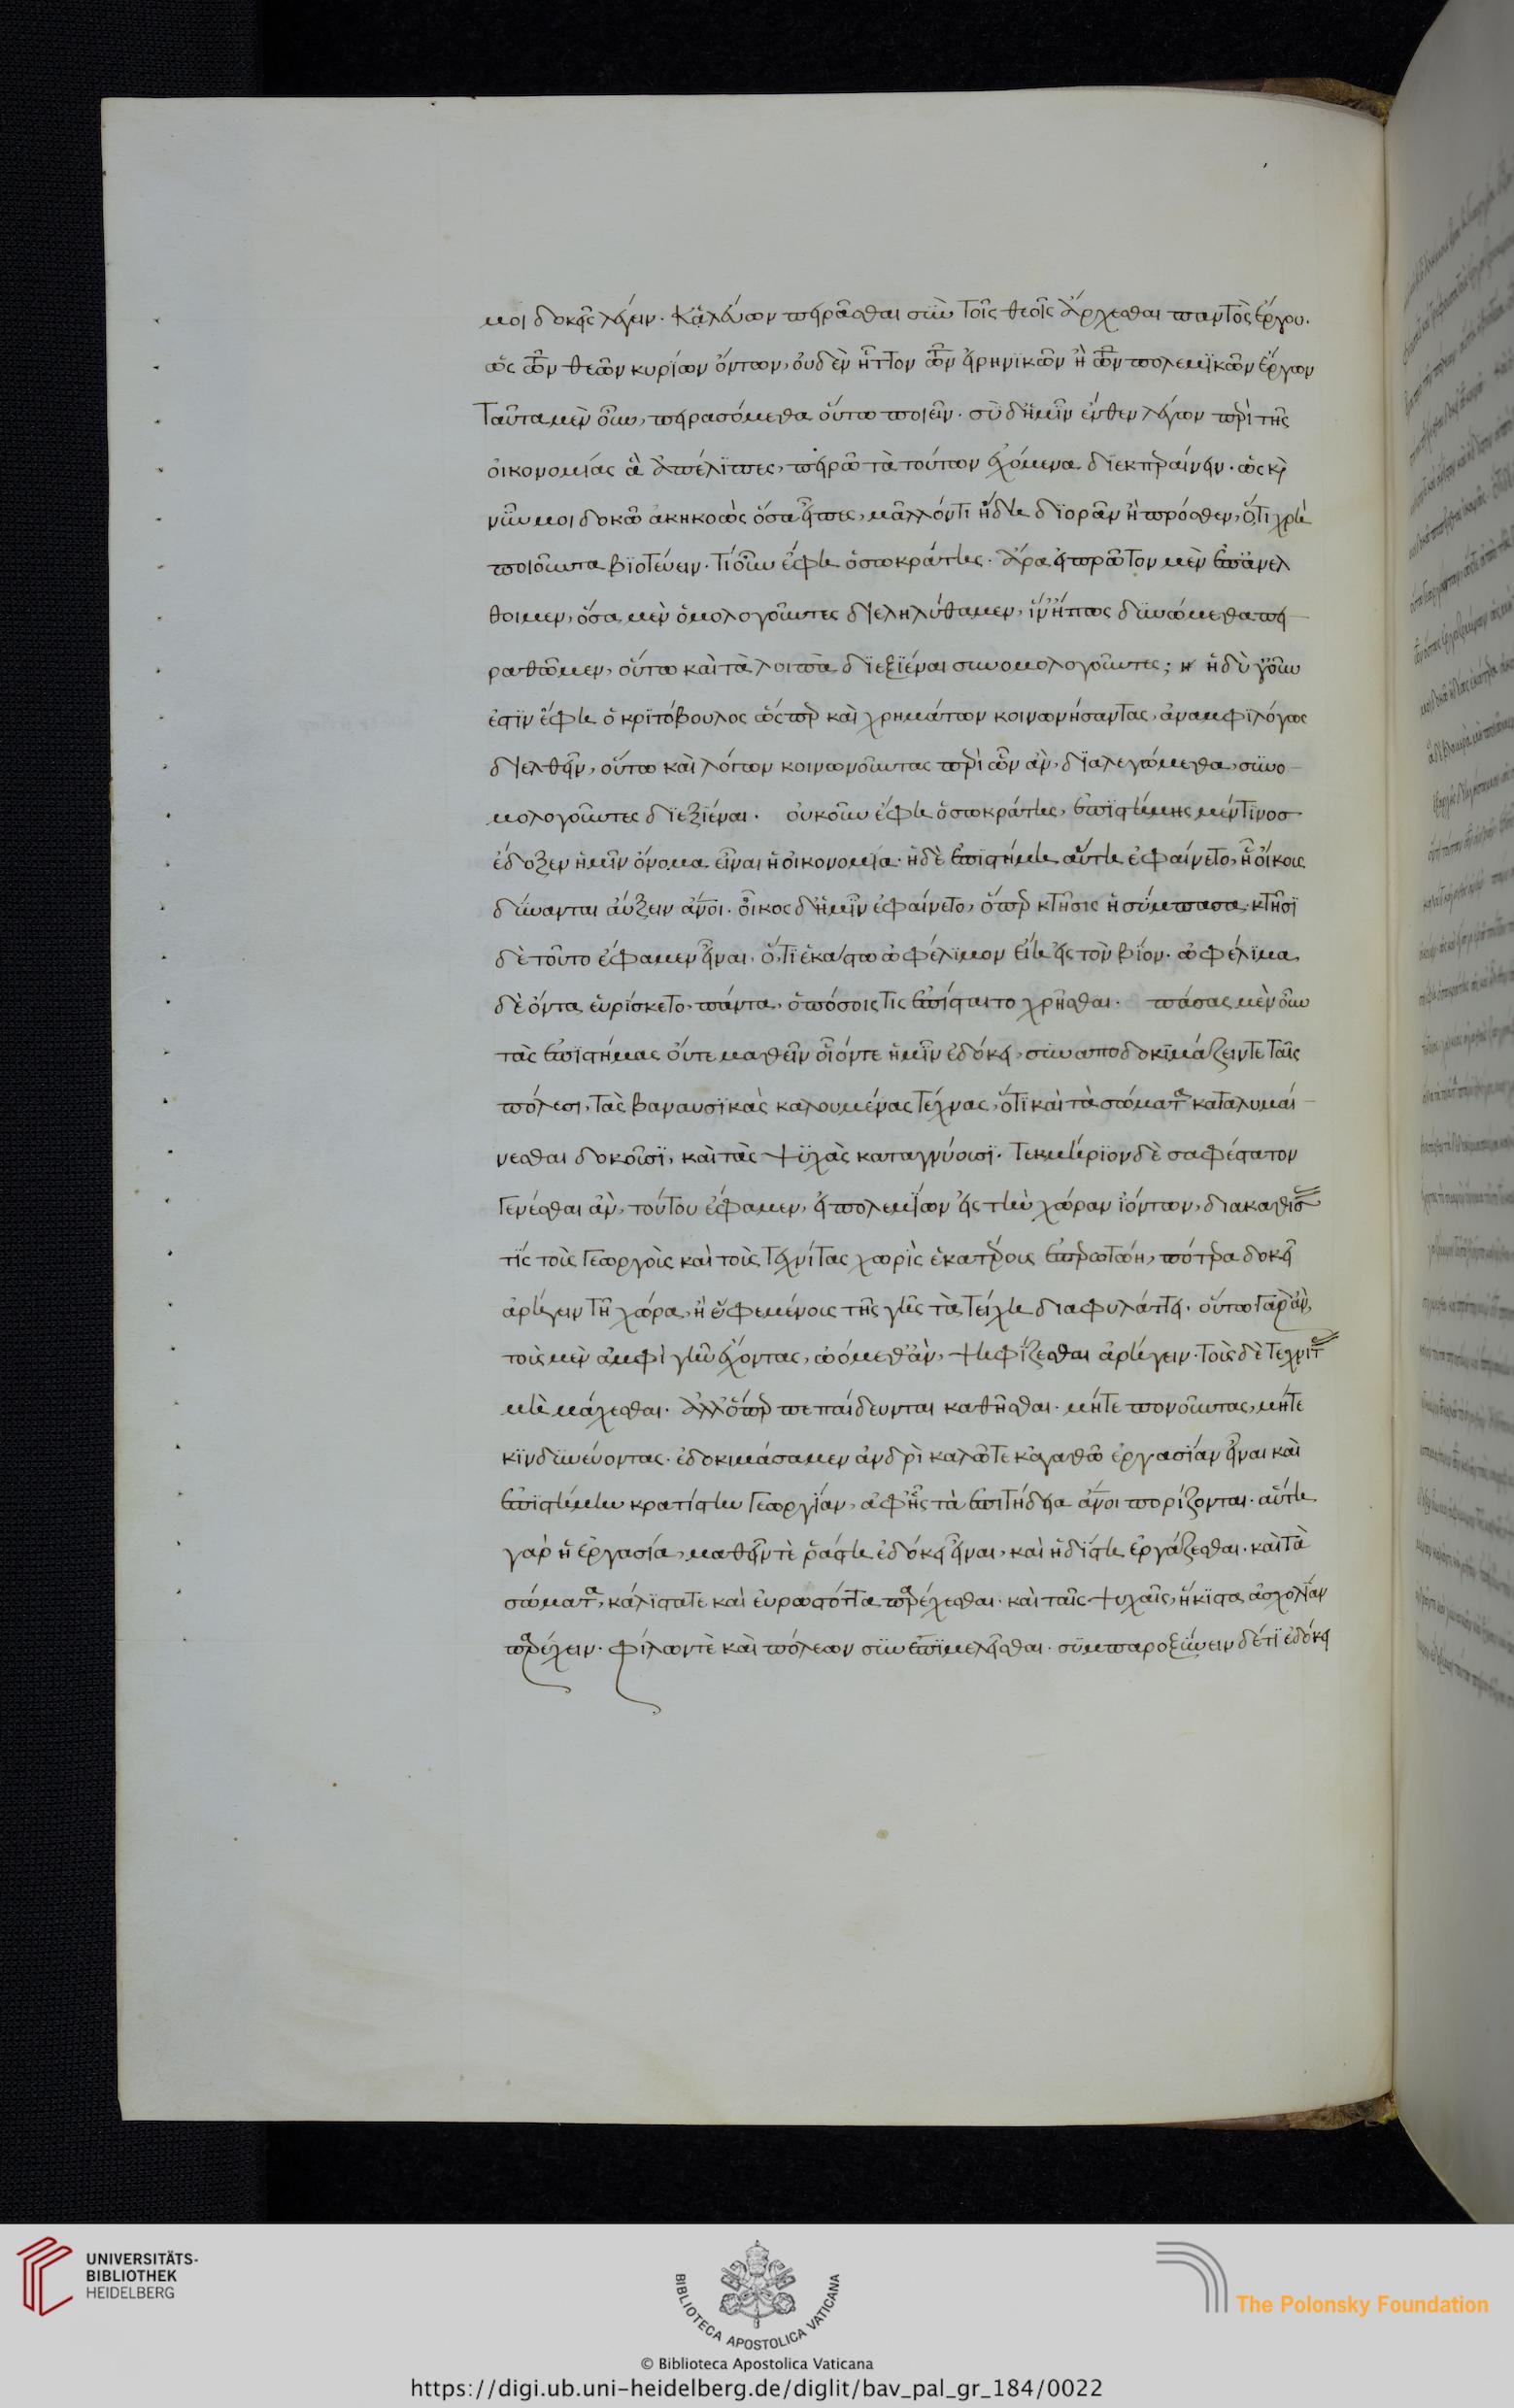 μοι δοκεῖς λέγειν. κελεύων πειρᾶσθαι σὺν τοῖς θεοῖς ἄρχεσθαι παντὸς ἔργου.
ὡς τῶν θεῶν κυρίων ὄντων, οὐδὲν ἧττον τῶν εἰρηνϊκῶν ἢ τῶν πολεμϊκῶν ἔργων
Ταῦτα μὲν οὖν, πειρασόμεθα οὕτω ποιεῖν. σὺ δ' ἡμῖν ἔνθεν λέγων περὶ τῆς
οἰκονομίας ἃ ἀπέλιπες, πειρῶ τὰ τούτων ἐχόμενα διεκπεραίνειν. ὡς καὶ
νῦν μοι δοκῶ ἀκηκοὼς ὅσα εἶπες, μᾶλλόν τι ἤδη διορᾶν ἢ πρόσθεν, ὅ,τι χρὴ
ποιοῦντα βϊοτεύειν. τί οὖν ἔφη ὁ σωκράτης. ἆρα εἰ πρῶτον μὲν ἐπανέλ
θοιμεν, ὅσα μὲν ὁμολογοῦντες διεληλύθαμεν, ἵν' ἤν πως δυνώμεθα πει-
ραθῶμεν, οὕτω καὶ τὰ λοιπὰ διεξϊέναι συνομολογοῦντες; ἡδὺ γ' οὖν
ἐστὶν ἔφη ὁ κρϊτόβουλος ὥσπερ καὶ χρημάτων κοινωνήσαντας, ἀναμφϊλόγως
διελθεῖν, οὕτω καὶ λόγων κοινωνοῦντας περὶ ὧν ἂν, διαλεγώμεθα, συνο-
μολογοῦντες διεξϊέναι. οὐκοῦν ἔφη ὁ σωκράτης, ἐπιστήμης μέν τινοσ
ἔδοξεν ἡμῖν ὄνομα εἶναι ἡ οἰκονομία. ἡ δὲ ἐπιστήμη αὕτη ἐφαίνετο, ᾗ οἴκους
δύνανται αὔξειν ἄνοι. οἶκος δ' ἡμῖν ἐφαίνετο, ὅπερ κτῆσις ἡ σύμπασα. κτῆσϊ
δὲ τοῦτο ἔφαμεν εἶναι, ὅ,τι ἑκάστω ὠφέλϊμον εἴη εἰς τὸν βίον. ὠφέλϊμα
δὲ ὄντα εὑρίσκετο, πάντα, ὁπόσοις τις ἐπίσταιτο χρῆσθαι. πάσας μὲν οὖν
τὰς ἐπιστήμας οὔτε μαθεῖν οἷόν τε ἡμῖν ἐδόκει, συναποδοκϊμάζειν τε ταῖς
πόλεσι, τὰς βαναυσϊκὰς καλουμένας τέχνας, ὅτι καὶ τὰ σώματα καταλυμαί-
νεσθαι δοκοῦσϊ, καὶ τὰς ψϋχὰς καταγνύουσϊ. τεκμήριον δὲ σαφέστατον
γενέσθαι ἂν, τούτου ἔφαμεν, εἰ πολεμίων εἰς τὴν χώραν ἰόντων, διακαθίσας
τίς τοὺς γεωργοὺς καὶ τοὺς τεχνίτας χωρὶς ἑκατέρους ἐπερωτώη, πότερα δοκεῖ
ἀρήγειν τῆ χώρα, ἢ ὑφεμένους τῆς γῆς τὰ τείχη διαφυλάττει. οὕτω γὰρ ἂν,
τοὺς μὲν ἀμφὶ γῆν ἔχοντας, ὠόμεθ' ἂν, ψηφίζεσθαι ἀρήγειν. τοὺς δὲ τεχνίτας
μὴ μάχεσθαι. ἀλλ' ὅπερ πεπαίδευνται καθῆσθαι. μήτε πονοῦντας, μήτε
κϊνδϋνεύοντας. ἐδοκιμάσαμεν ἀνδρὶ καλῶ τε κἀγαθῶ ἐργασίαν εἶναι καὶ
ἐπιστήμην κρατίστην γεωργίαν, ἀφ' ἧς τὰ ἐπιτήδεια ἄνοι πορίζονται. αὕτη
γὰρ ἡ ἐργασία, μαθεῖν τὲ ῥάστη ἐδόκει εἶναι, καὶ ἡδίστη ἐργάζεσθαι. καὶ τὰ
σώματα, κάλϊστα τε καὶ εὐρωστότατα παρέχεσθαι. καὶ ταῖς ψυχαῖς, ἥκιστα ἀσχολίαν
παρέχειν. φίλων τὲ καὶ πόλεων συνεπιμελεῖσθαι. συμπαροξύνειν δέ τϊ ἐδόκει
UNIVERSITÄTS-
BIBLIOTHEK
HEIDELBERG
BIBLIOTECA APOSTOLICA VATICANA
The Polonsky Foundation
© Biblioteca Apostolica Vaticana
https://digi.ub.uni-heidelberg.de/diglit/bav_pal_gr_184/0022